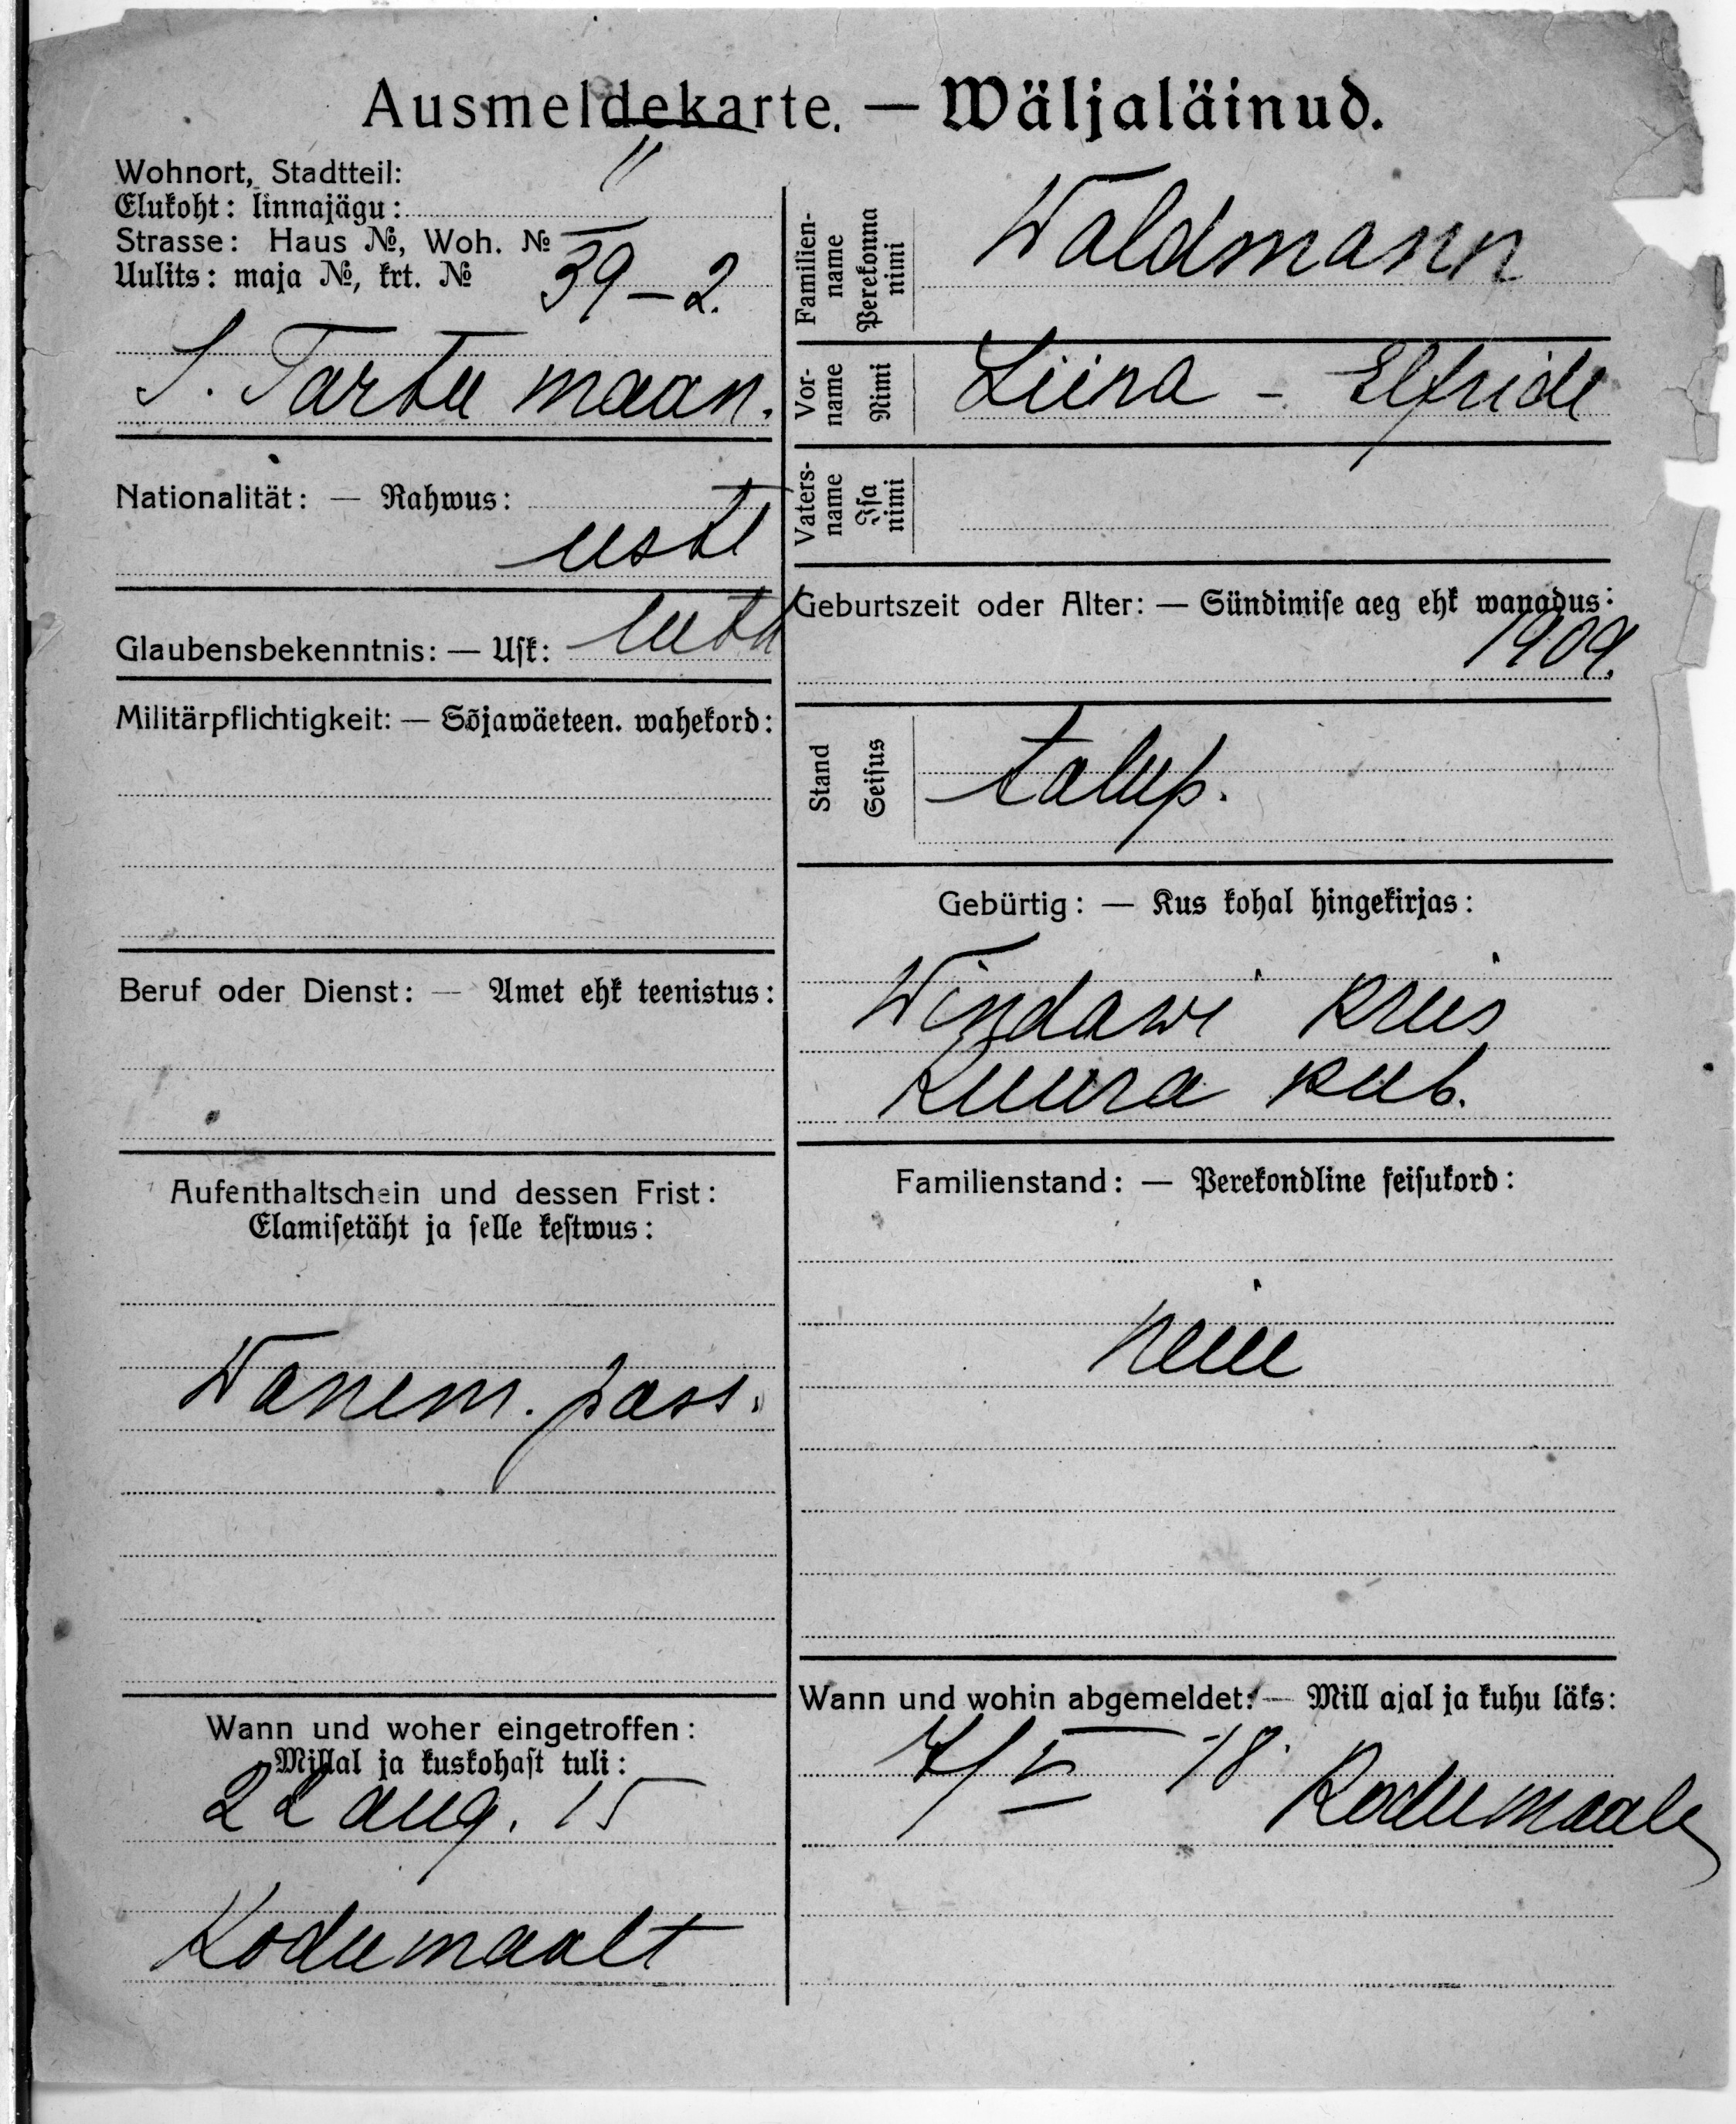 Ausmeldekarte. — Wäljaläinud.
Wohnort, Stadtteil:
Elukoht: linnajägu:
II
Strasse: Haus №, Woh. №
Uulits: maja №, krt. №
39-2.
S. Tartu maan.
Nationalität: — Rahwus:
eesti
Glaubensbekenntnis: — Usk:
luth
Militärpflichtigkeit: — Sõjawäeteen. wahekord:
Beruf oder Dienst: — Amet ehk teenistus:
Aufenthaltschein und dessen Frist:
Elamisetäht ja selle kestwus:
Wanem. pass.
Wann und woher eingetroffen:
Millal ja kuskohast tuli:
22 aug. 15
Kodumaalt
Familien-
name
Perekonna
nimi
Waldmann
Vor-
name
Nimi
Liina - Elfride
Vaters-
name
Isa
nimi
Geburtszeit oder Alter: — Sündimise aeg ehk wanadus:
1909.
Stand
Seisus
talup.
Gebürtig: — Kus kohal hingekirjas:
Windawi kreis
Kuura kub.
Familienstand: — Perekondline seisukord:
neiu
Wann und wohin abgemeldet: — Mill ajal ja kuhu läks:
4/V 18.
Kodumaale